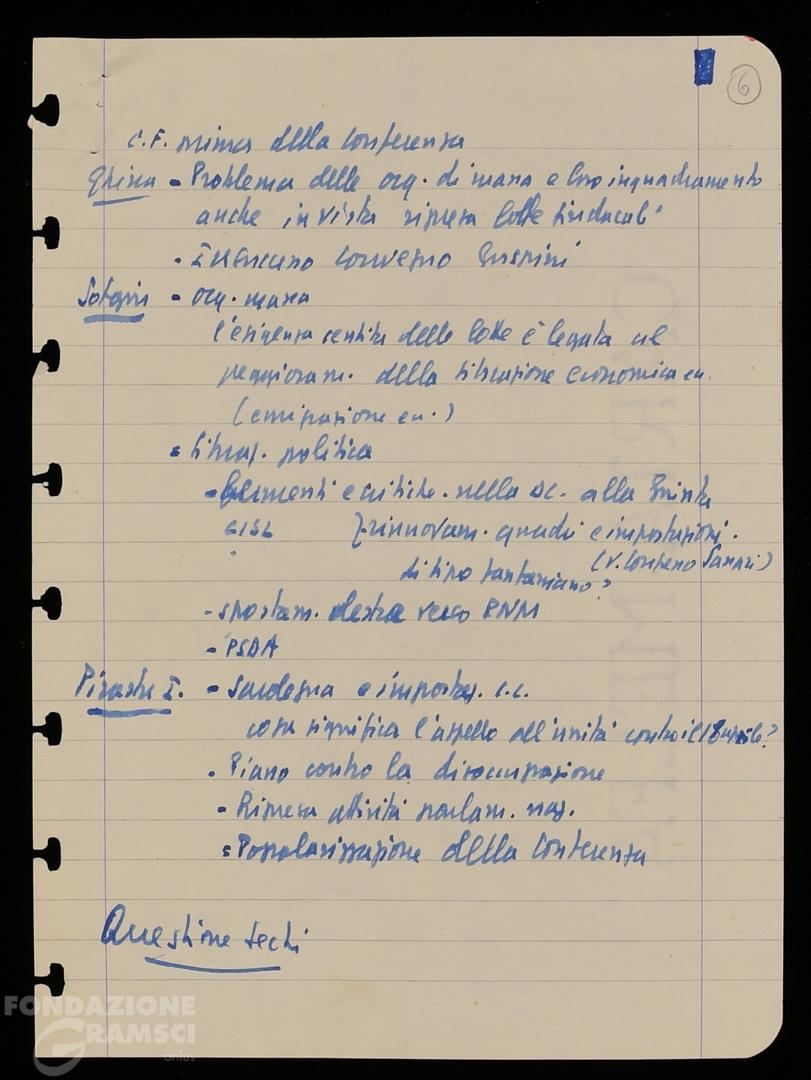 6
C.F. prima della Conferenza
Ghina - Problema delle org. di massa e loro inquadramento
anche in vista ripresa lotte sindacali
- convegno
Sotgiu - org. massa
l'esigenza sentita delle lotte è legata al
peggioram. della situazione economica ecc.
(emigrazione ecc.)
- situaz. politica
- fermenti e critiche nella DC. alla Giunta
CISL } rinnovam. quadri e impostazioni.
(v. Congresso Sassari)
di tipo fanfaniano?
- spostam. destra verso PNM
- PSDA
Pirastu I. - Sardegna e impostaz. C.C.
cosa significa l'appello all'unità contro il
- Piano contro la disoccupazione
- Ripresa attività parlam. reg.
- Popolarizzazione della Conferenza
Questione Sechi
FONDAZIONE
GRAMSCI
onlus